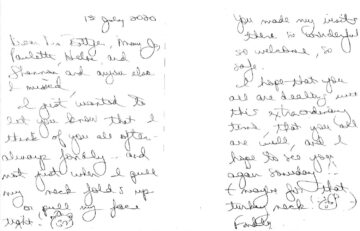 1st July 2020
Dear Dr. Bottger, Mary Jo,
Paulette, and
Shannon and anyone else
I missed,
I just wanted to
let you know that I
think of you all often -
always fondly - and
not just when I pull
my neck folds up
or pull my face
tight.
You made my visits
there so wonderful
so welcome, so
safe.
I hope that you
all are dealing with
this extraordinary
time, that you all
are well, and I
hope to see you
again someday!
+ maybe for that
turkey neck!
Fondly